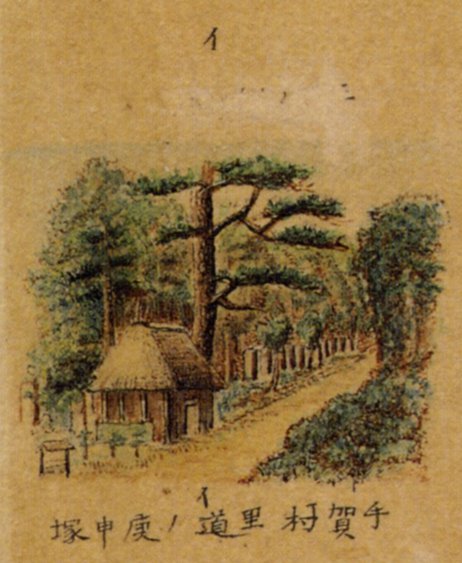 イ
イ
手賀村里道ノ庚申塚